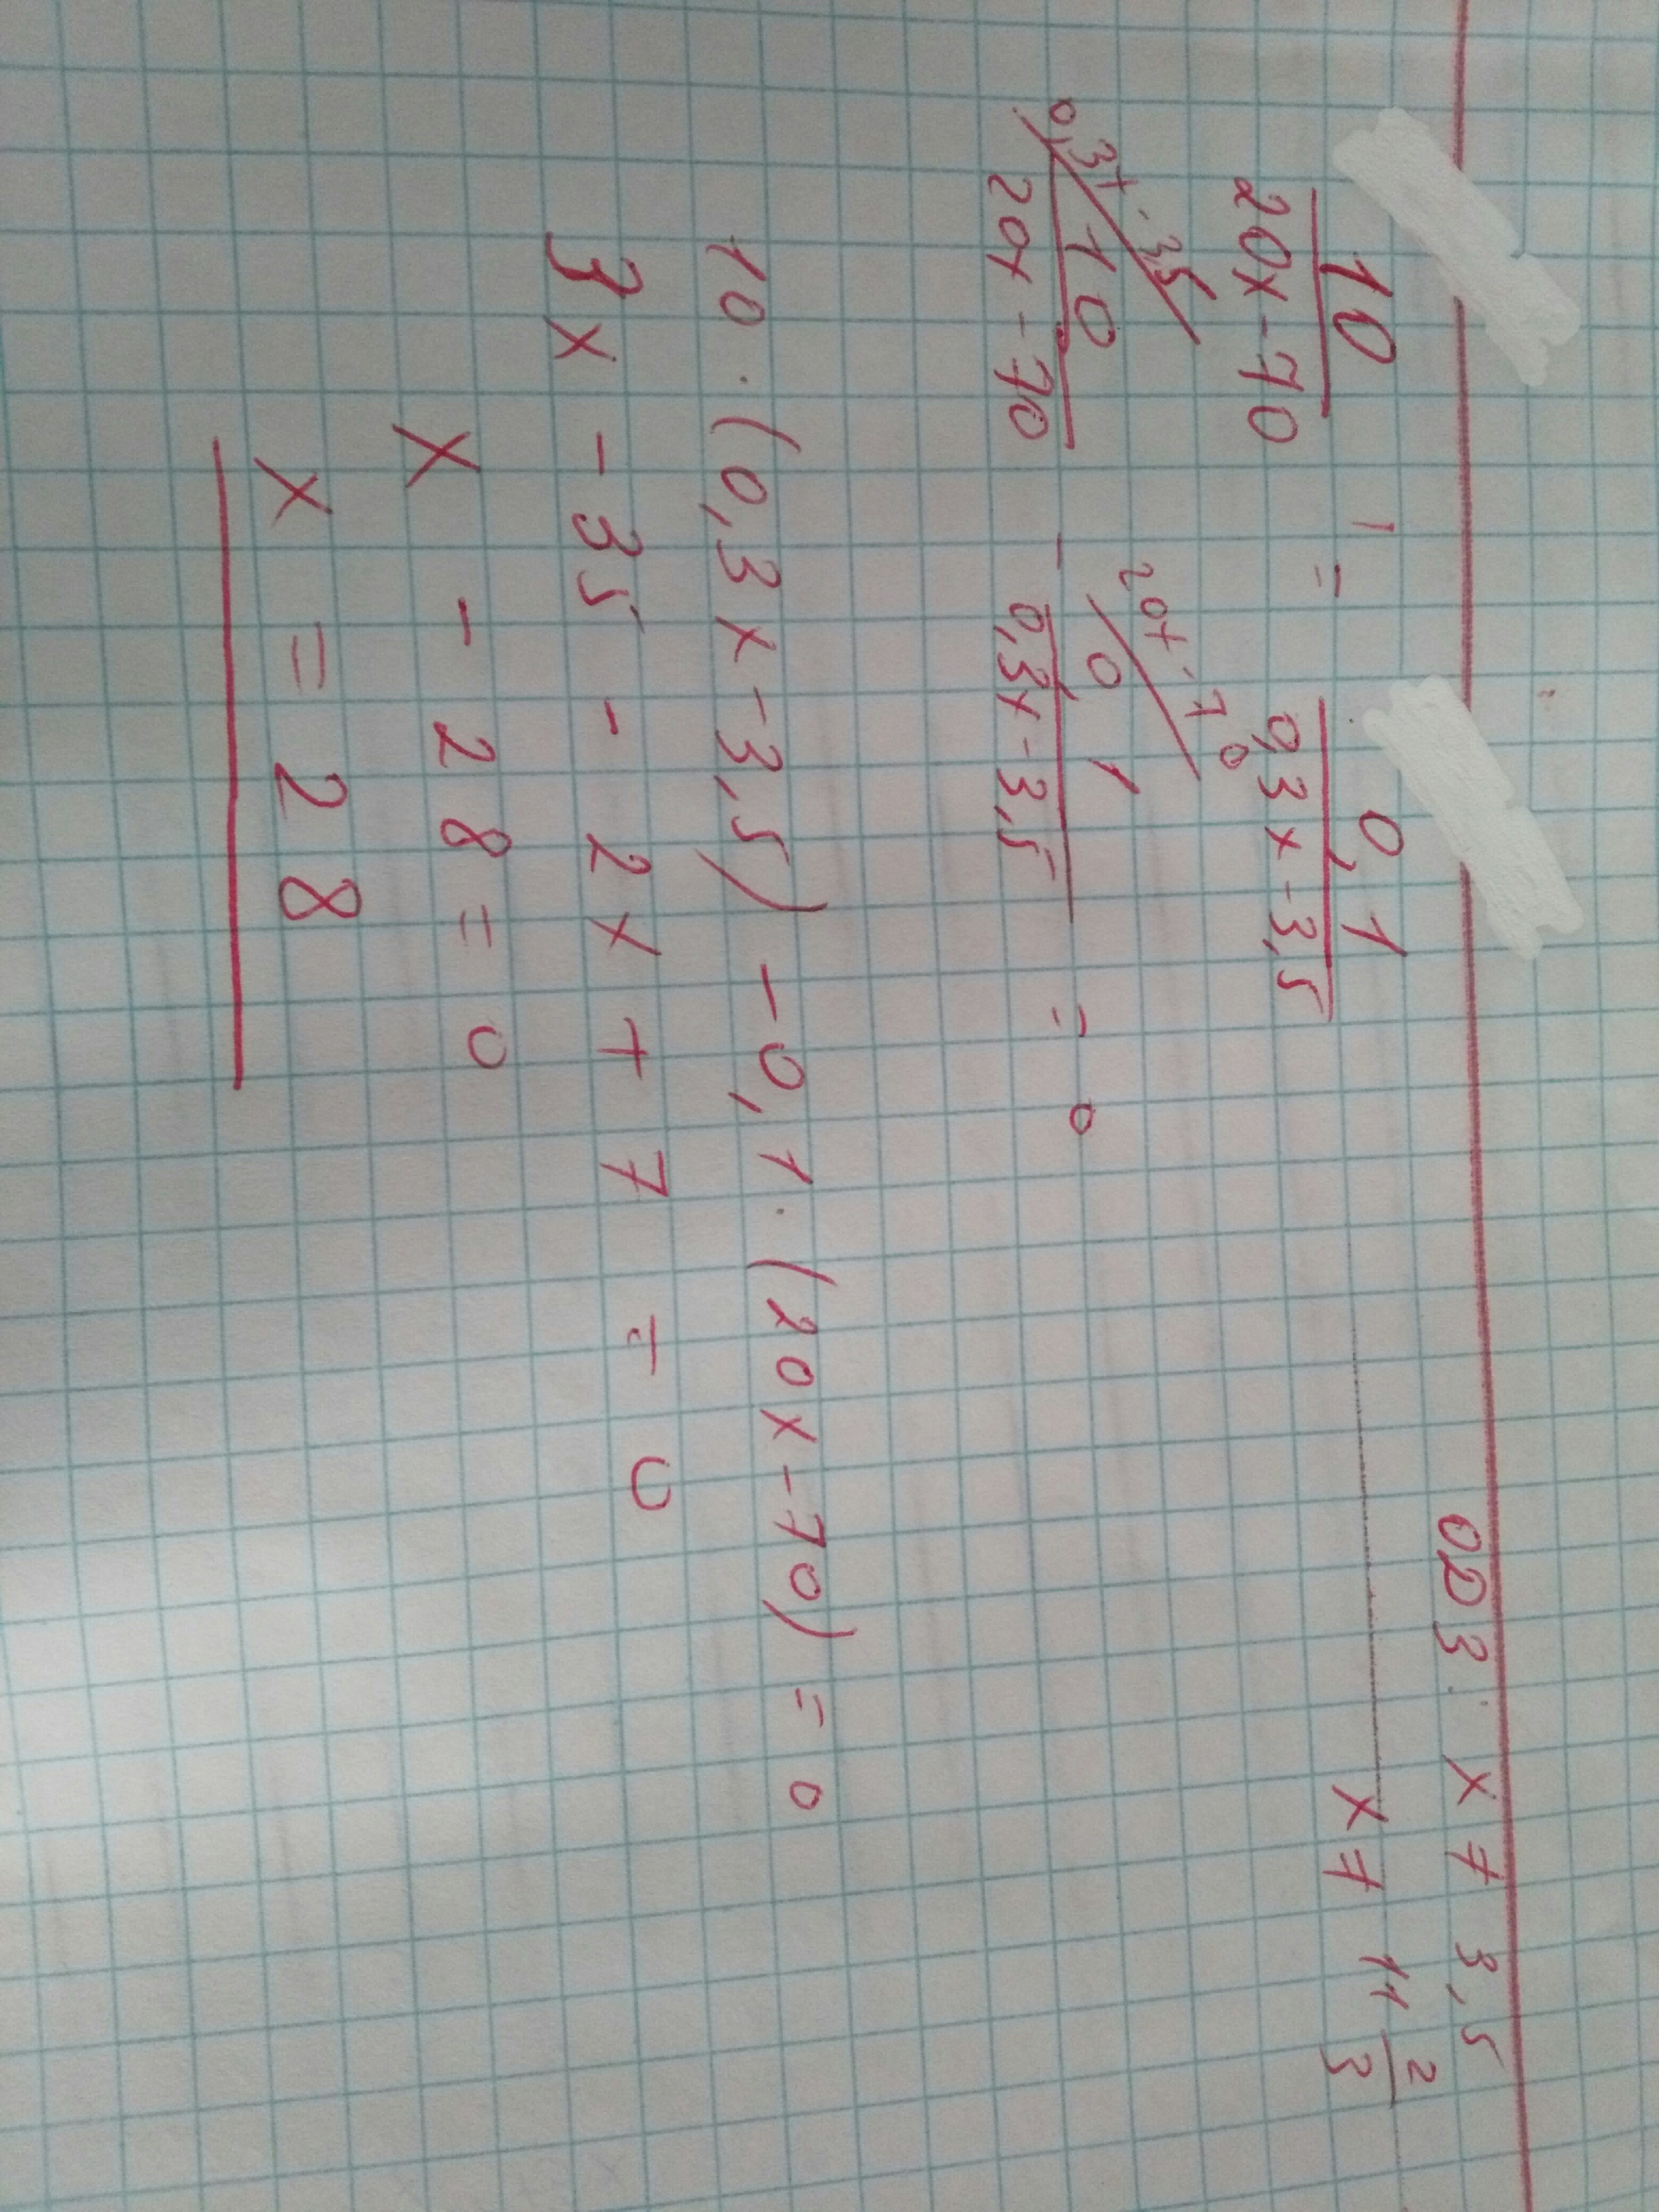 ОДЗ: x ≠ 3,5
x ≠ 11 2/3
10/(20x-70) = 0,1/(0,3x-3,5)
0,3x-3,5 20x-70
10/(20x-70) - 0,1/(0,3x-3,5) = 0
10·(0,3x-3,5) -0,1·(20x-70) = 0
3x-35-2x+7 = 0
x-28=0
x=28